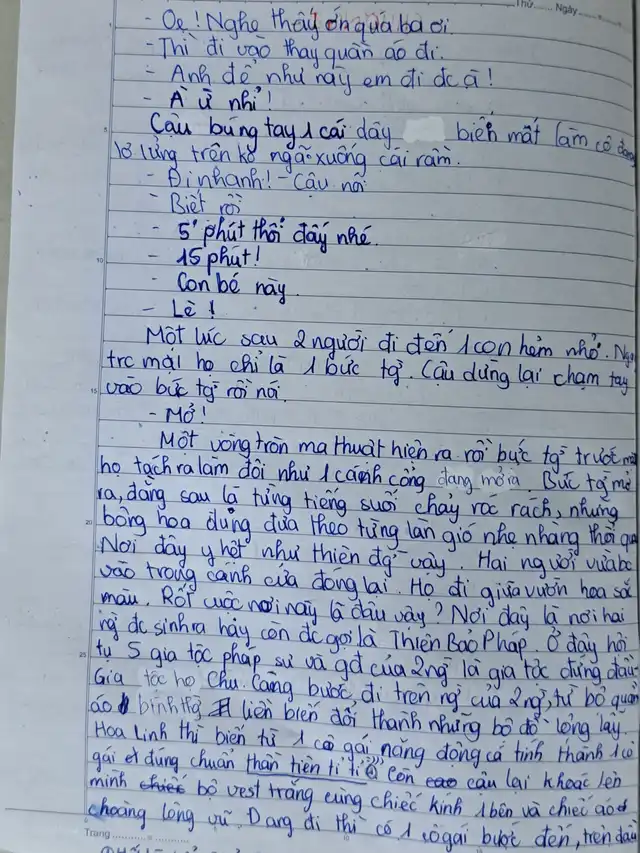 Thứ...... Ngày......
- Oe! Nghe thấy ớn quá ba ơi.
- Thì đi vào thay quần áo đi.
- Anh để như này em đi đc à!
- À ừ nhỉ!
Cậu búng tay 1 cái dây biến mất làm cô đang
lơ lửng trên ko ngã xuống cái rầm.
- Đi nhanh! - Cậu nói
- Biết rồi
- 5' phút thôi đấy nhé.
- 15 phút!
- Con bé này.
- Lè!
Một lúc sau 2 người đi đến 1 con hẻm nhỏ.
trc mặt họ chỉ là 1 bức tg. Cậu dừng lại chạm tay
vào bức tg rồi nói.
- Mở!
Một vòng tròn ma thuật hiện ra rồi bực tg trước
họ tách ra làm đôi như 1 cánh cổng đang mở ra. Bức tg mở
ra, đằng sau là từng tiếng suối chảy róc rách, nhưng
bông hoa đung đưa theo từng làn gió nhẹ nhàng thổi qua
Nơi đây y hệt như thiên đg vậy. Hai người vừa bc
vào trong cánh cửa đóng lại. Họ đi giữa vườn hoa sắc
màu. Rốt cuộc nơi này là đâu vậy? Nơi đây là nơi hai
ng đc sinh ra hay còn đc gọi là Thiên Bảo Pháp. Ở đây hội
tụ 5 gia tộc pháp sư và gđ của 2 ng là gia tộc đứng đầu.
Gia tộc họ Chu. Càng bước đi trên ng của 2 ng, từ bộ quần
áo bình thg liền biến đổi thành những bộ đồ lộng lẫy.
Hoa Linh thì biến từ 1 cô gái năng động cá tính thành 1 cô
gái đúng chuẩn thần tiên tỉ tỉ Còn cậu lại khoác lên
mình bộ vest trắng cùng chiếc kính 1 bên và chiếc áo
choàng lông vũ. Đang đi thì có 1 cô gái bước đến, trên đầu
Trang